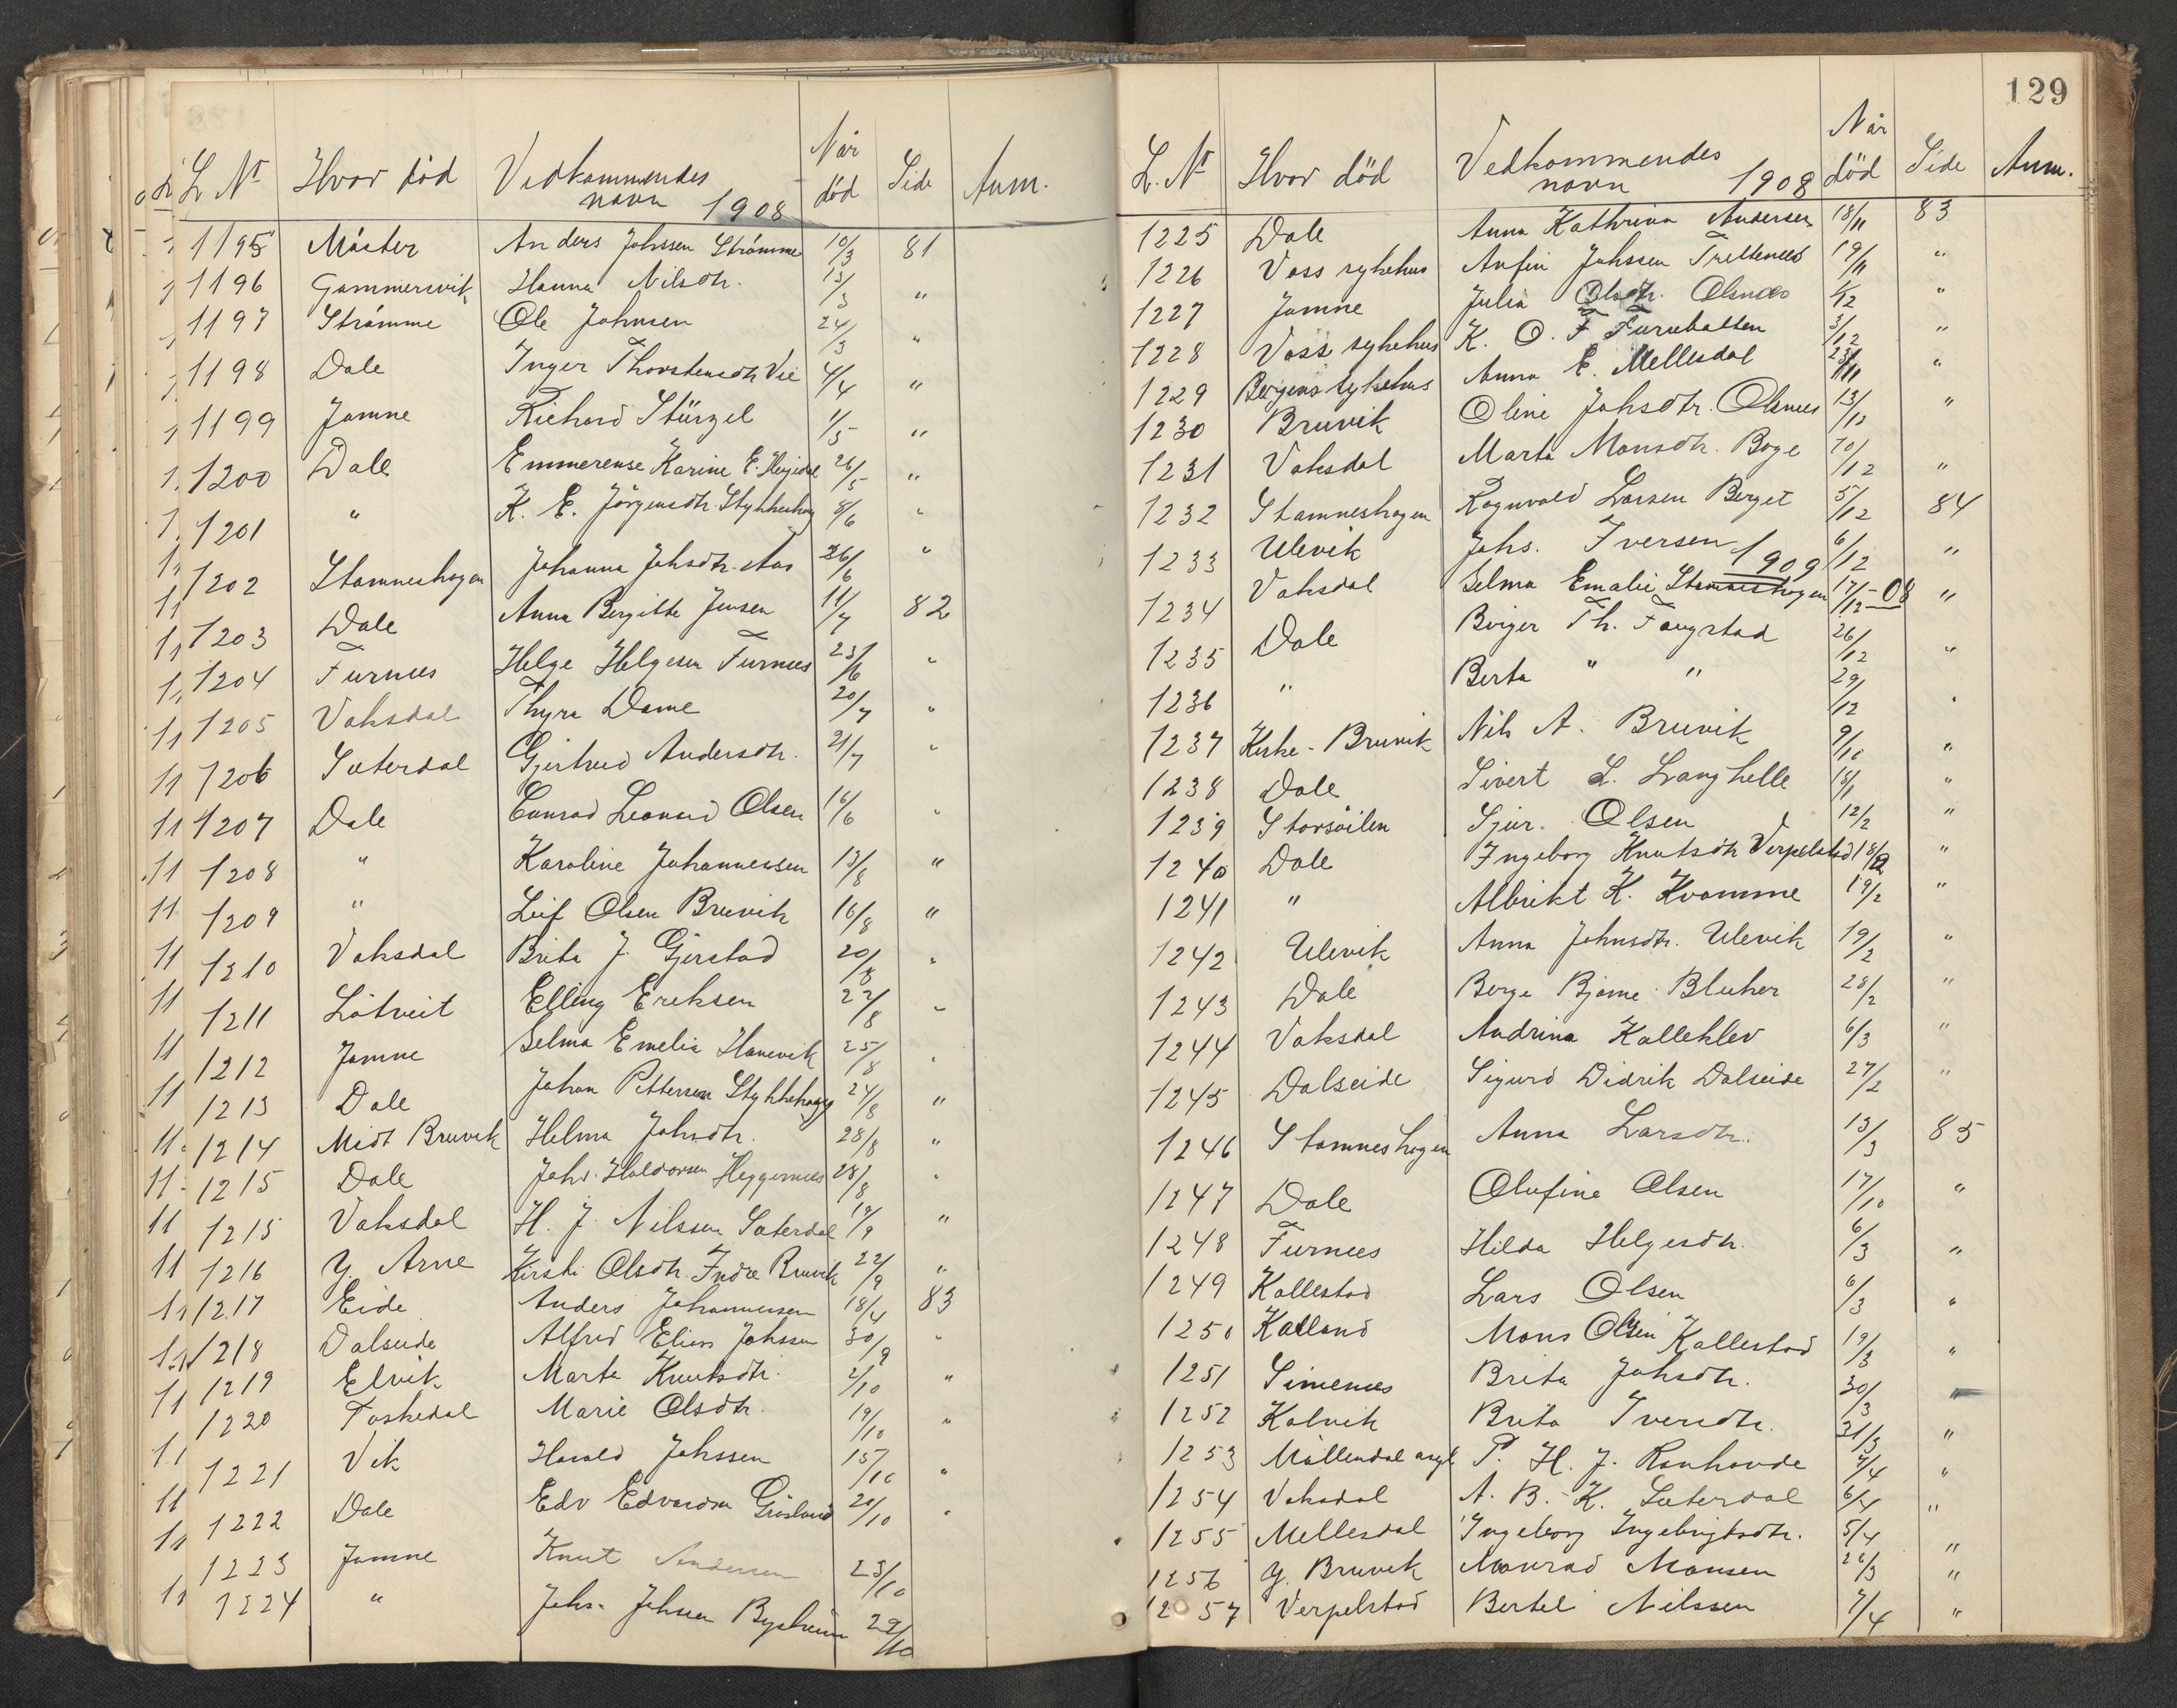 L. Nr Hvor död Vedkommendes navn 1908 Når död Side Anm.
1195 Måster Anders Johssen Strömme 10/3 81
1196 Gammersvik Hanna Nilsdtr. 13/3 "
1197 Strömme Ole Johnsen 24/3 "
1198 Dale Inger Thorstensdtr Vie 4/4 "
1199 Jamne Richard Stürzel 1/5 "
1200 Dale Emmerense Karine E. 26/5 "
1201 " K. E. Jörgensdtr. Stykkeshag 8/6 "
1202 Stamneshagen Johanna Johsdtr. Aas 26/6 "
1203 Dale Anna Bergitte Jensen 11/7 82
1204 Furnees Helge Helgesen Furnees 23/6 "
1205 Vaksdal Thyra Dame 20/7 "
1206 Sæterdal Gjertrud Andersdtr. 21/7 "
1207 Dale Conrad Leonard Olsen 16/6 "
1208 " Karoline Johannessen 13/8 "
1209 " Leif Olsen Bruvik 16/8 "
1210 Vaksdal Brita J. Gjerstad 20/8 "
1211 Låtveit Elling Eriksen 22/8 "
1212 Jamne Selma Emelia Hanevik 25/8 "
1213 Dale Johan Pettersen Stykkehagg 24/8 "
1214 Midt Bruvik Helma Johsdtr. 28/8 "
1215 Dale Johs. Haldorsen Heggernees 28/8 "
1215 Vaksdal H. J. Nilssen Sæterdal 14/9 "
1216 Y. Arne Kirsti Olsdtr. Indre Bruvik 22/9 "
1217 Eide Anders Johannessen 18/4 83
1218 Dalseide Alfred Elias Johssen 30/9 "
1219 Elvik Marta Knutsdtr. 2/10 "
1220 Toskedal Marie Olsdtr. 19/10 "
1221 Vik Harald Johssen 15/10 "
1222 Dale Edv Edvardsen Gråsland 20/10 "
1223 Jamne Knut Andersen 23/10
1224 " Johs. Johssen Bysheim 29/10
129
L. Nr Hvor död Vedkommendes navn 1908 Når död Side Anm.
1225 Dale Anna Kathrina Andersen 18/11 83
1226 Voss sykehus Anfin Johssen Trettenees 19/11 "
1227 Jamne Julia Olsdtr. Olsnæs 1/12 "
1228 Voss sykehus K. O. F Furubotten 3/12 "
1229 Bergens sykehus Anna E. Mellesdal 23/11 "
1230 Bruvik Oline Johsdtr. Olsnees 13/12 "
1231 Vaksdal Marta Monsdtr. Boge 10/12 "
1232 Stamneshagen Ragnvald Larsen Berget 5/12 84
1233 Ulevik Johs. Iversen 6/12 "
1909
1234 Vaksdal Selma Emalie Stamneshagen 17/12-08 "
1235 Dale Birger Th. Faugstad 26/12 "
1236 " Berta " " 29/12 "
1237 Kirke-Bruvik Nils A. Bruvik 9/10 "
1238 Dale Sivert L. Langhelle 18/1 "
1239 Storsöilen Sjur. Olsen 12/2 "
1240 Dale Ingeborg Knutsdtr Verpelstad 18/2 "
1241 " Albrikt K. Kvamme 19/2 "
1242 Ulevik Anna Johnsdtr. Ulevik 19/2 "
1243 Dale Berge Bjarne Bluher 28/2 "
1244 Vaksdal Andrina Kalleklev 6/3 "
1245 Dalseide Sigurd Didrik Dalseide 27/2 "
1246 Stamneshagen Anna Larsdtr. 13/3 85
1247 Dale Olufine Olsen 17/10 "
1248 Furnees Hilda Helgesdtr. 6/3 "
1249 Kallestad Lars Olsen 6/3 "
1250 Kalland Mons Olsen Kallestad 19/3 "
1251 Simenees Brita Johsdtr. 30/3 "
1252 Kalvik Brita Iversdtr. 31/3 "
1253 Möllendal asyl P. H. J. Ranhovde 7/4 "
1254 Vaksdal A. B. K. Sæterdal 6/4 "
1255 Mellesdal Ingeborg Ingebrigtsdtr. 5/4 "
1256 Y. Bruvik Monrad Monsen 26/3 "
1257 Verpelstad Bertel Nilssen 7/4 "